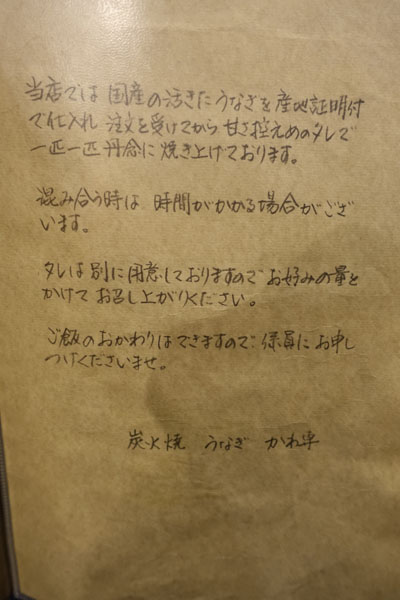 当店では 国産の活きたうなぎを 産地証明付
で仕入れ 注文を受けてから 甘さ控えめのタレで
一匹一匹 丹念に 焼き上げております。
混み合う時は 時間がかかる場合がござ
います。
タレは 別に 用意しておりますので お好みの量を
かけて お召し上がりください。
ご飯のおかわりはできますので 係員にお申し
つけくださいませ。
炭火焼 うなぎ かね